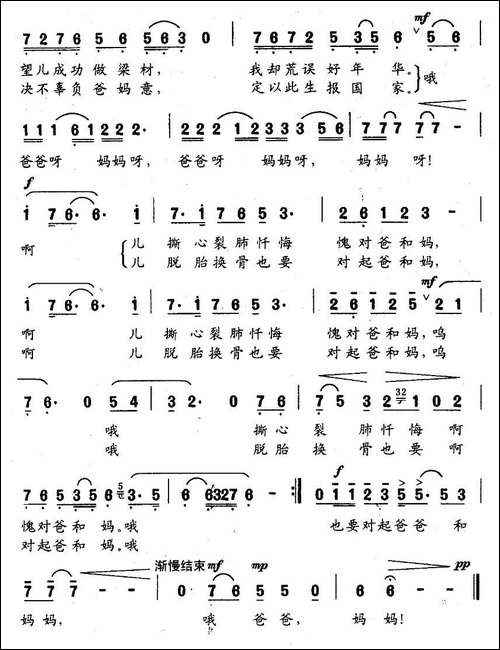 7 2 7 6 5 6 5 6 3 0 | 7 6 7 2 5 3 5 6 mf 5 6
望儿成功做梁材, 我却荒误好年华。哦
决不辜负爸妈意, 定以此生报国家。
1 1 1 6 1 2 2 2· | 2 2 2 1 2 3 3 3 5 6 | 7 7 7 7 7 - |
爸爸呀 妈妈呀, 爸爸呀 妈妈呀, 妈妈呀!
f
1 7 6· 6· 1 | 7· 1 7 6 5 3· | 2 6 1 2 3 - |
啊 儿撕心裂肺忏悔 愧对爸和妈,
儿脱胎换骨也要 对起爸和妈,
mf
1 7 6· 6· 1 | 7· 1 7 6 5 3 | 2 6 1 2 5 2 1 |
啊 儿撕心裂肺忏悔 愧对爸和妈,呜
啊 儿脱胎换骨也要 对起爸和妈,呜
7 6· 0 5 4 | 3 2· 0 7 6 | 7 5 3 2 32 1 0 2 |
哦 撕心裂肺忏悔啊
哦 脱胎换骨也要啊
f
7 6 5 3 5 6 5 3· 5 | 6 6 3 2 7 6 - :‖ 0 1 1 2 3 5 5· 5 3 |
愧对爸和妈。哦 也要对起爸爸和
对起爸和妈。哦
渐慢结束 mf mp pp
7 7 7 - - | 0 7 6 5 5 0 | 6 6 - - ‖
妈妈, 哦爸爸, 妈妈!